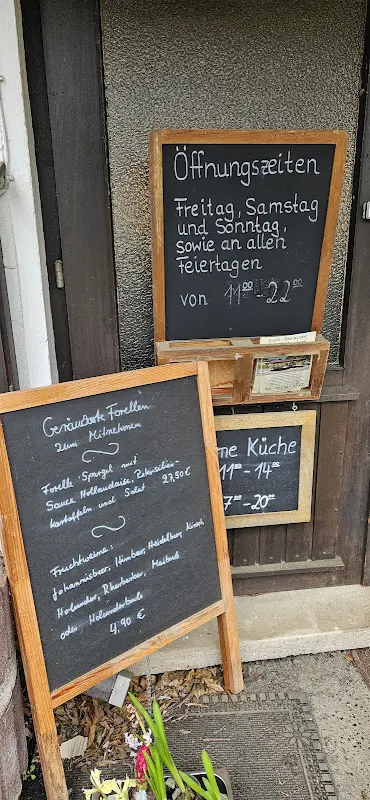 Öffnungszeiten
Freitag, Samstag
und Sonntag,
sowie an allen
Feiertagen
von 11⁰⁰ - 22⁰⁰
me Küche
11⁻⁻ - 14⁰⁰
7⁰⁰ - 20⁰⁰
Geräucherte Forellen
zum Mitnehmen
Forelle Spargel mit
Sauce Hollandaise, Petersilien-
kartoffeln und Salat 27,50 €
Fruchtweine:
Johannisbeer, Himbeer, Heidelbeer, Kirsch
Holunder, Rhabarber, Maibock
oder Holunderblüte
4,90 €